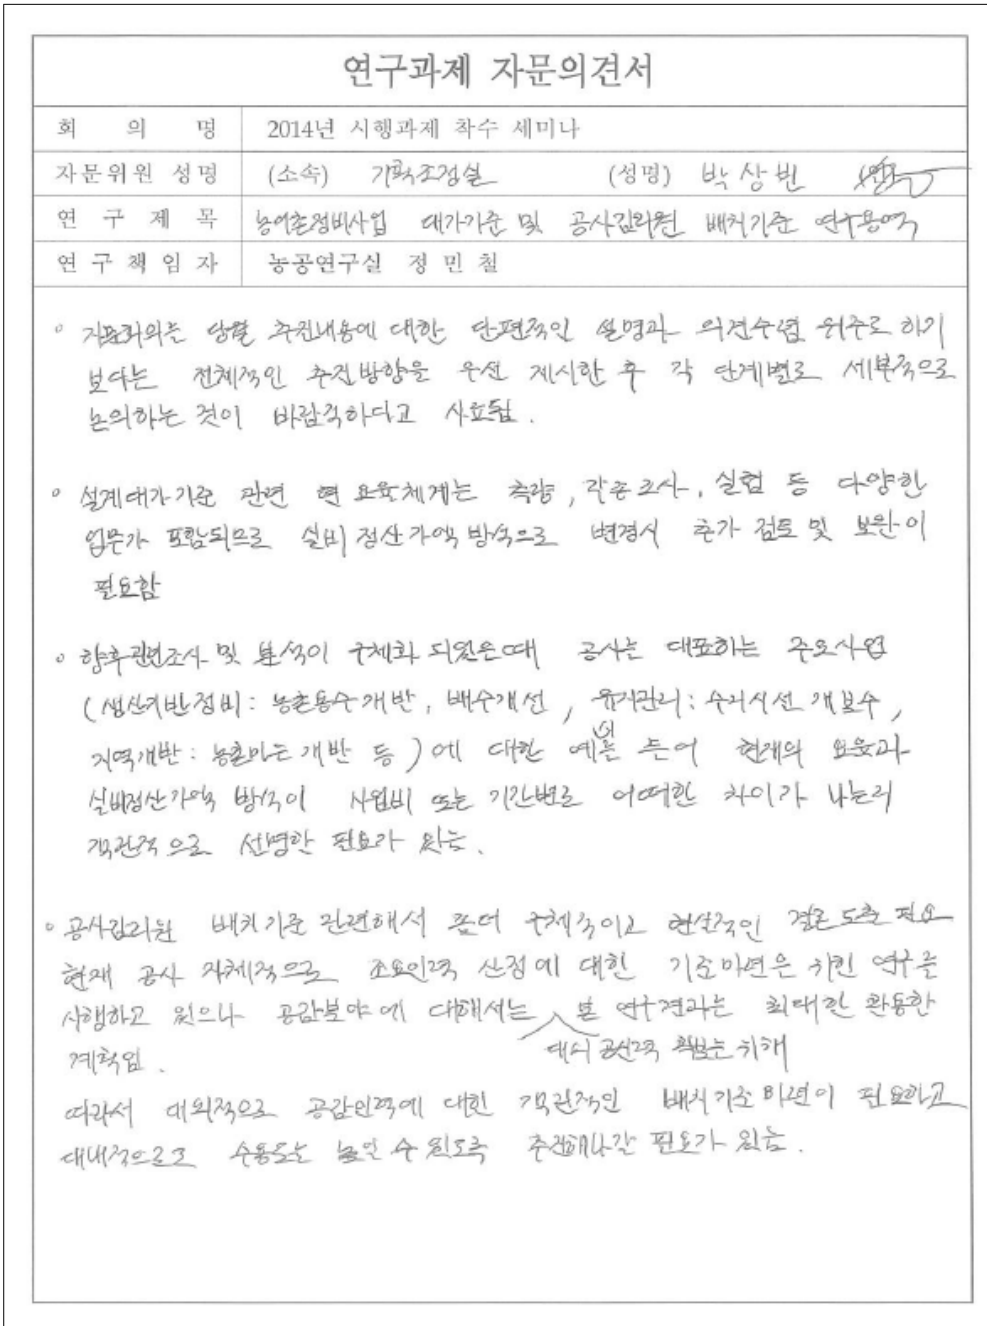 연구과제 자문의견서
회 의 명 2014년 시행과제 착수 세미나
자문위원 성명 (소속) 기획조정실 (성명) 박상빈
연 구 제 목 농어촌정비사업 대가기준 및 공사감리원 배치기준 연구용역
연 구 책 임 자 농공연구실 정 민 철
◦ 자문회의는 당월 추진내용에 대한 단편적인 설명과 의견수렴 위주로 하기
보다는 전체적인 추진방향을 우선 제시한 후 각 단계별로 세부적으로
논의하는 것이 바람직하다고 사료됨.
◦ 설계대가기준 관련 현 요율체계는 측량, 각종조사, 실험 등 다양한
업무가 포함되므로 실비정산가액방식으로 변경시 추가 검토 및 보완이
필요함
◦ 향후관련조사 및 분석이 구체화 되었을때 공사를 대표하는 주요사업
(생산기반정비: 농촌용수개발, 배수개선, 유지관리: 수리시설 개보수,
지역개발: 농촌마을개발 등)에 대한 예를 들어 현재의 요율과
실비정산가액 방식이 사업비 또는 기간별로 어떠한 차이가 나는지
객관적으로 설명할 필요가 있음.
◦ 공사감리원 배치기준 관련해서 좀더 구체적이고 현실적인 결론도출 필요
현재 공사 자체적으로 소요인력 산정에 대한 기준마련을 위한 연구를
시행하고 있으나 공감분야에 대해서는 본 연구결과를 최대한 활용할
대외 공신력 확보를 위해
계획임.
따라서 대외적으로 공감인력에 대한 객관적인 배치기준 마련이 필요하고
대내적으로도 수용을 높일 수 있도록 추진해나갈 필요가 있음.